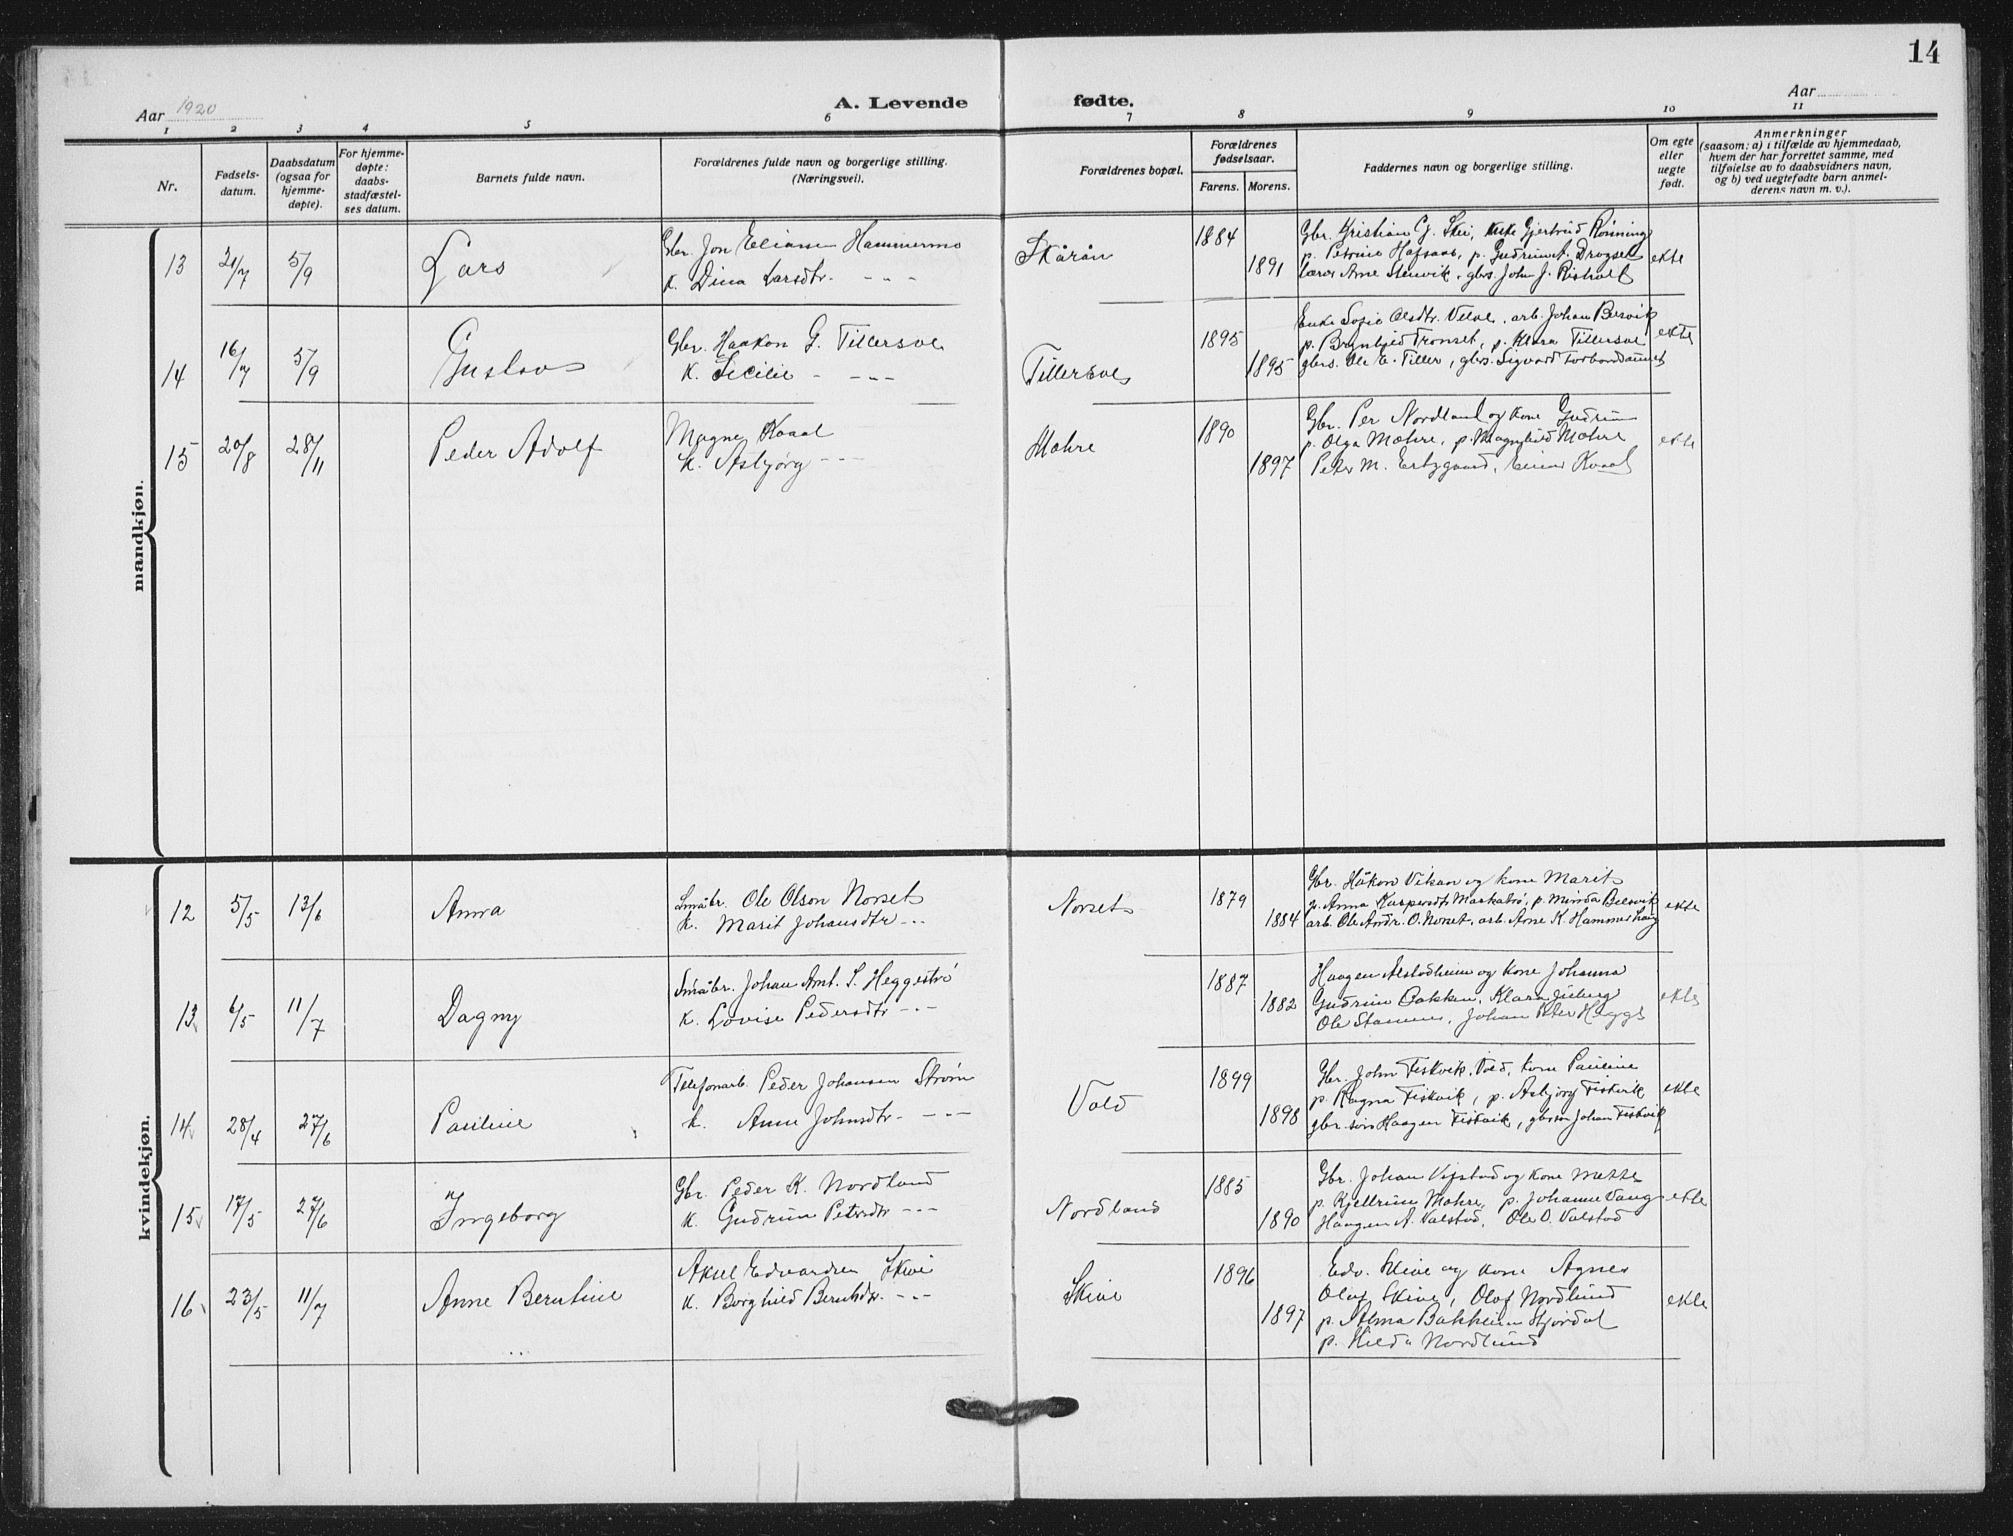 14
Aar 1920
A. Levende fødte.
Aar
1 2 3 4 5 6 7 8 9 10 11
Nr.
Fødsels-
datum.
Daabsdatum
(ogsaa for
hjemme-
døpte).
For hjemme-
døpte:
daabs-
stadfæstel-
ses datum.
Barnets fulde navn.
Forældrenes fulde navn og borgerlige stilling.
(Næringsvei).
Forældrenes bopæl.
Forældrenes
fødselsaar.
Farens. Morens.
Faddernes navn og borgerlige stilling.
Om egte
eller
uegte
født.
Anmerkninger
(saasom: a) i tilfælde av hjemmedaab,
hvem der har forrettet samme, med
tilføielse av to daabsvidners navn,
og b) ved uegtefødte barn anmel-
derens navn m. v.).
mandkjøn.
13 21/7 5/9 Lars
Gbr. Jon Eliasen Hammermo
K. Dina Larsdtr. - - -
Skårån
1884
1891
Gbr. Kristian G. Skei, Gjertrud Rönning
p. Petrine Hafsaas, p. Gudrun A. Dragset
Lærer Arne Stenvik, gbrs. John J. Risholt
ekte
14 16/7 5/9 Gustav
Gbr. Haakon G. Tillersve
K. Secilie - - - -
Tillersve
1895
1895
Enke Sofie Olsdtr. Velve, arb. Johan Bersvik
p. Brynhild Tronset, p. Klara Tillersve
gbrs. Ole E. Tiller, gbrs. Sigvard
ekte
15 20/8 28/11 Peder Adolf
Magne Kvaal
K. Asbjørg - - -
Mæhre
1890
1897
Gbr. Per Nordland og kone Gudrun
p. Olga Mæhre, p. Magnhild Mæhre
Peter M. Einar Kvaal
ekte
kvindekjøn.
12 5/5 13/6 Anna
Småbr. Ole Olson Norset
K. Marit Johansdtr - - -
Norset
1879
1884
Gbr. Håkon Vikan og kone Marit
p. Anna Kaspersdtr p. Minda Bersvik
arb. Ole Andr. O. Norset, arb. Arne K. Hammerhaug
ekte
13 6/5 11/7 Dagmy
Småbr. Johan Arnt. S. Heggeströ
K. Lovise Pedersdtr - - -
1887
1882
Haagen Alstadheim og kone Johanna
Gudrun Bakken, Klara
Ole Stamnes, Johan Peter
ekte
14 28/4 27/6 Pauline
Telefonarb. Peder Johansen Strøm
k. Anne Johnsdtr - - - -
Vold
1899
1898
Gbr. John Fiskvik, Vold, kone Pauline
p. Ragna Fiskvik, p. Asbjørg Fiskvik
gbr. søn Haagen Fiskvik, gbrsøn Johan Fiskvik
ekte
15 17/5 27/6 Ingeborg
Gbr. Peder K. Nordland
K. Gudrun Petersdtr - - -
Nordland
1885
1890
Gbr. Johan Vifstad og kone Mette
p. Kjellrun Mæhre, p. Johanne Vang
Haagen A. Valstad, Ole O. Valstad
ekte
16 23/5 11/7 Anne Berntine
Aksel Edvardsen Skive
K. Borghild Berntsdtr. - - -
Skive
1896
1897
Edv. Skive og kone Agnes
Olaf Skive, Olaf Nordlund
p. Alma Bakheim Stjørdal
p. Hilda Nordlund
ekte